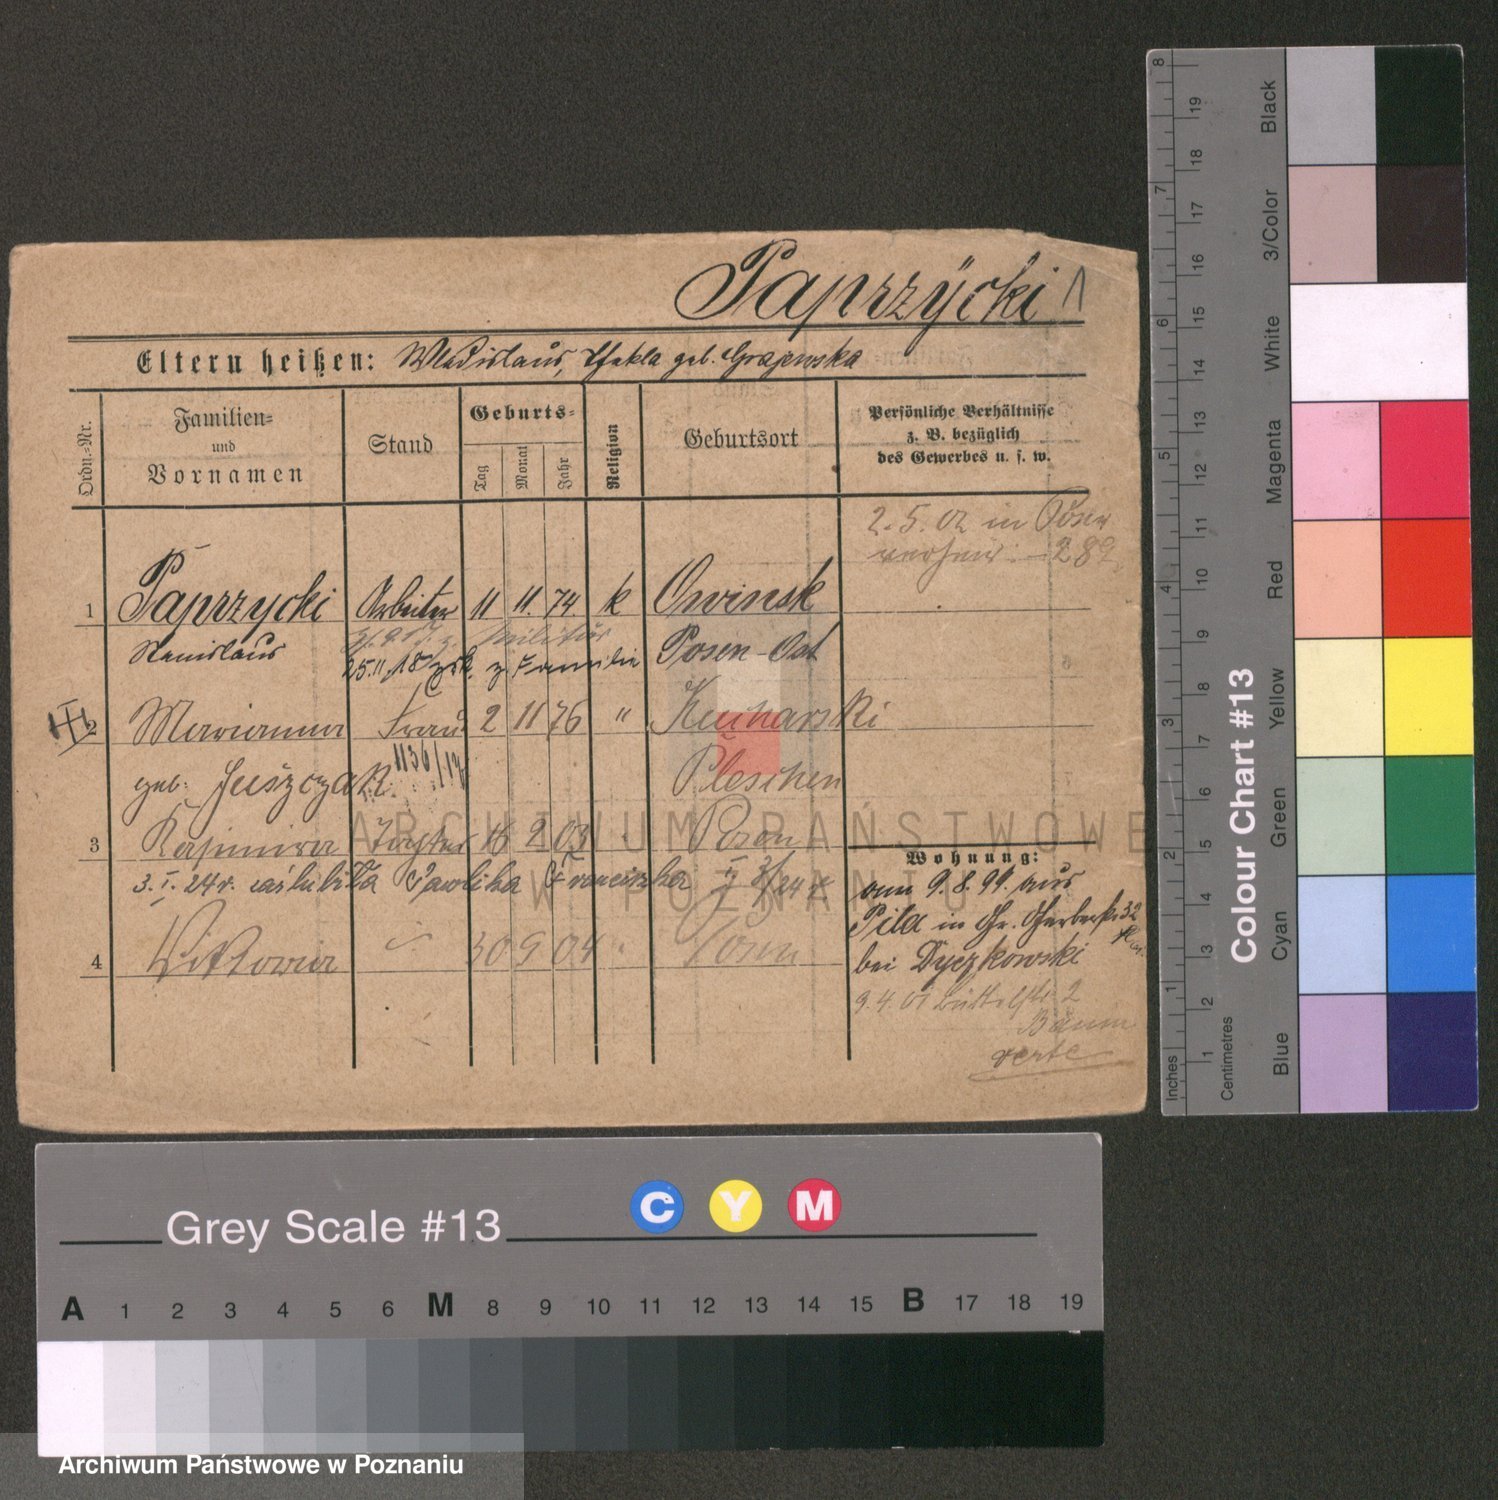 Paprzÿcki 1
Eltern heißen: Wladislaus, Thekla geb. Grajewska
Ordn.-Nr.
Familien-
und
Vornamen
Stand
Geburts-
Tag
Monat
Jahr
Religion
Geburtsort
Persönliche Verhältnisse
z. B. bezüglich
des Gewerbes u. s. w.
2. 5. 02 in Posen
289
1 Paprzycki Arbeiter 11 11. 74. k Owinsk
Stanislaus Militär Posen-Ost
25.11.18 zrk. z. Familie
2 Marianna Frau 2 11 76 " Kucharski
1136/17
geb. Juszczak. Pleschen
3 Kasimira Tochter 2 03 Posen
3. I. 24 r. zaślubiła Pawlika Franciszka
4 Viktoria 30 9 04 " Posen
Wohnung:
am 9. 8. 99. aus
Pila in Gr. Gerberstr. 32
bei Dyczkowski
9. 4. 01 Büttelstr. 2
verte
ARCHIWUM PAŃSTWOWE
W POZNANIU
Inches
1 2 3 4 5 6 7 8
Centimetres
1 2 3 4 5 6 7 8 9 10 11 12 13 14 15 16 17 18 19
Colour Chart #13
Blue Cyan Green Yellow Red Magenta White 3/Color Black
Grey Scale #13
C Y M
A 1 2 3 4 5 6 M 8 9 10 11 12 13 14 15 B 17 18 19
Archiwum Państwowe w Poznaniu